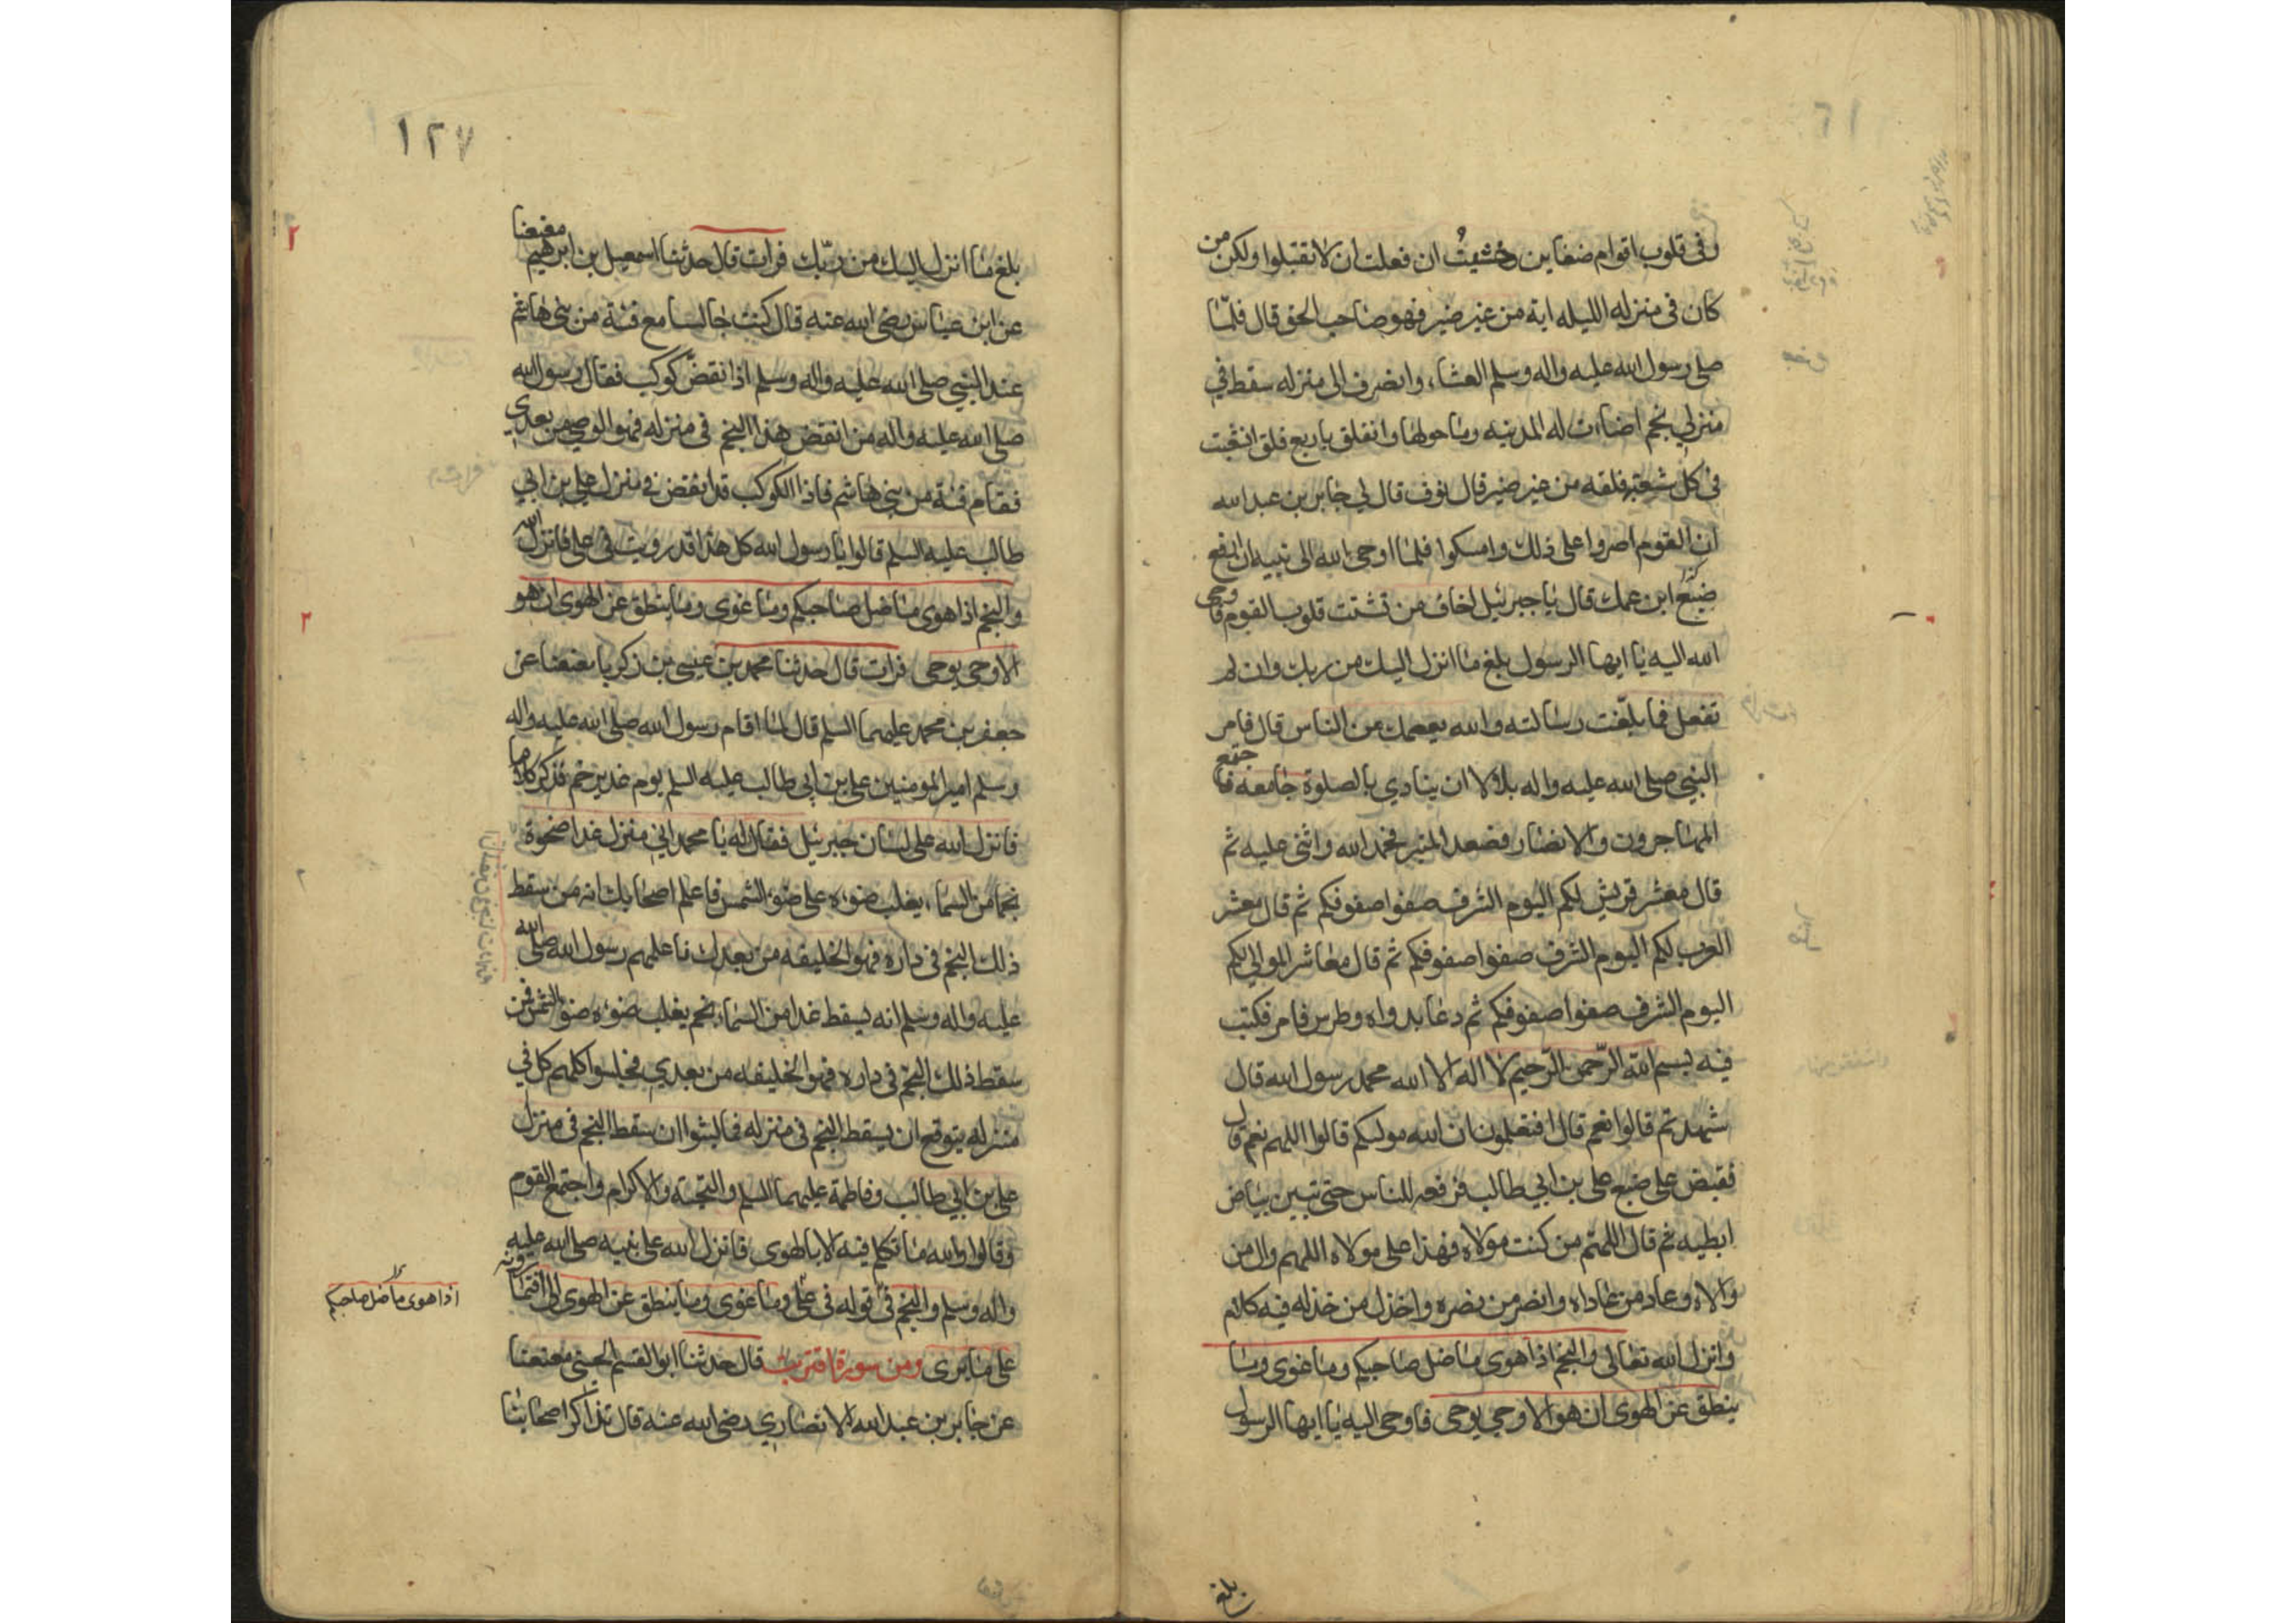 وفى قلوب اقوام ضغاين وخشيتُ ان فعلت ان لا تقبلوا ولكن من
كان فى منزله الليله اية من غير ضير فهو صاحب الحق قال فلمّا
صلى رسول الله عليه واله وسلم العشاء وانصرف الى منزله سقط في
منزلي نجم اضاءت له المدينه وما حولها وانفلق باربع فلق انشعبت
فى كل شعبة فلقه من غير ضير قال نوف قال لي جابر بن عبد الله
ان القوم اصروا على ذلك وامسكوا فلما اوحى الله الى نبيه ان ارفع
ضبع ابن عمك قال يا جبرئيل اخاف من تشتت قلوب القوم فاوحى
الله اليه يا ايها الرسول بلغ ما انزل اليك من ربك وان لم
تفعل فما بلّغت رسالته والله يعصمك من الناس قال فامر
النبي صلى الله عليه واله بلالا ان ينادي بالصلوة جامعه فاجتمع
المهاجرون والانصار فصعد المنبر فحمد الله واثنى عليه ثم
قال معشر قريش لكم اليوم الشرف صفوا صفوفكم ثم قال معشر
العرب لكم اليوم الشرف صفوا صفوفكم ثم قال معاشر الموالي لكم
اليوم الشرف صفوا صفوفكم ثم دعا بدواه وطرس فامر فكتب
فيه بسم الله الرّحمن الرّحيم لا اله الا الله محمد رسول الله قال
شهدتم قالوا نعم قال افتعلمون ان الله موليكم قالوا اللهم نعم قال
فقبض على ضبع على بن ابي طالب فرفعه للناس حتى تبين بياض
ابطيه ثم قال اللهم من كنت مولاه فهذا على مولاه اللهم وال من
والاه وعاد من عاداه وانصر من نصره واخذل من خذله فيه كلام
وانزل الله تعالى والنجم اذا هوى ما ضل صاحبكم وما غوى وما
ينطق عن الهوى ان هو الا وحي يوحى فاوحى اليه يا ايها الرسول
بلغ
١٢٧
بلغ ما انزل اليك من ربّك فرات قال حدثنا اسمعيل بن ابرهيم معنعنا
عن ابن عباس رضى الله عنه قال كنت جالسا مع فئة من بنى هاشم
عند النبي صلى الله عليه واله وسلم اذا نقضّ كوكب فقال رسول الله
صلى الله عليه واله من انقض هذا النجم فى منزله فهو الوصي من بعدي
فقام فئة من بنى هاشم فاذا الكوكب قد انقض في منزل على بن ابي
طالب عليه السلم قالوا يا رسول الله كل هذا قد رويت فى على فانزل الله
والنجم اذا هوى ما ضل صاحبكم وما غوى وما ينطق عن الهوى ان هو
الا وحى يوحى فرات قال حدثنا محمد بن عيسى بن زكريا معنعنا عن
جعفر بن محمد عليهما السلم قال لما اقام رسول الله صلى الله عليه واله
وسلم امير المومنين على بن ابي طالب عليه السلم يوم غدير خم فذكر كلاما
فانزل الله على لسان جبرئيل فقال له يا محمد اني منزل غدا ضحوة
نجما من السماء يغلب ضوءه على ضوء الشمس فاعلم اصحابك انه من سقط
ذلك النجم فى داره فهو الخليفه من بعدك فاعلمهم رسول الله صلى الله
عليه واله وسلم انه يسقط غدا من السماء نجم يغلب ضوءه ضوء الشمس فمن
سقط ذلك النجم فى داره فهو الخليفه من بعدي فجلسوا كلهم كل في
منزله يتوقع ان يسقط النجم فى منزله فما لبثوا ان سقط النجم فى منزل
على بن ابي طالب وفاطمة عليهما السلم والتحية والاكرام واجتمع القوم
وقالوا والله ما تكلم فيه الا بالهوى فانزل الله على نبيه صلى الله عليه
واله وسلم والنجم فى قوله فى على وما غوى وما ينطق عن الهوى الى افتمارونه
اذا هوى ما ضل صاحبكم
على ما يرى ومن سورة اقتربت قال حدثنا ابو القسم الحسنى معنعنا
عن جابر بن عبد الله الانصاري رضى الله عنه قال تذاكر اصحابنا